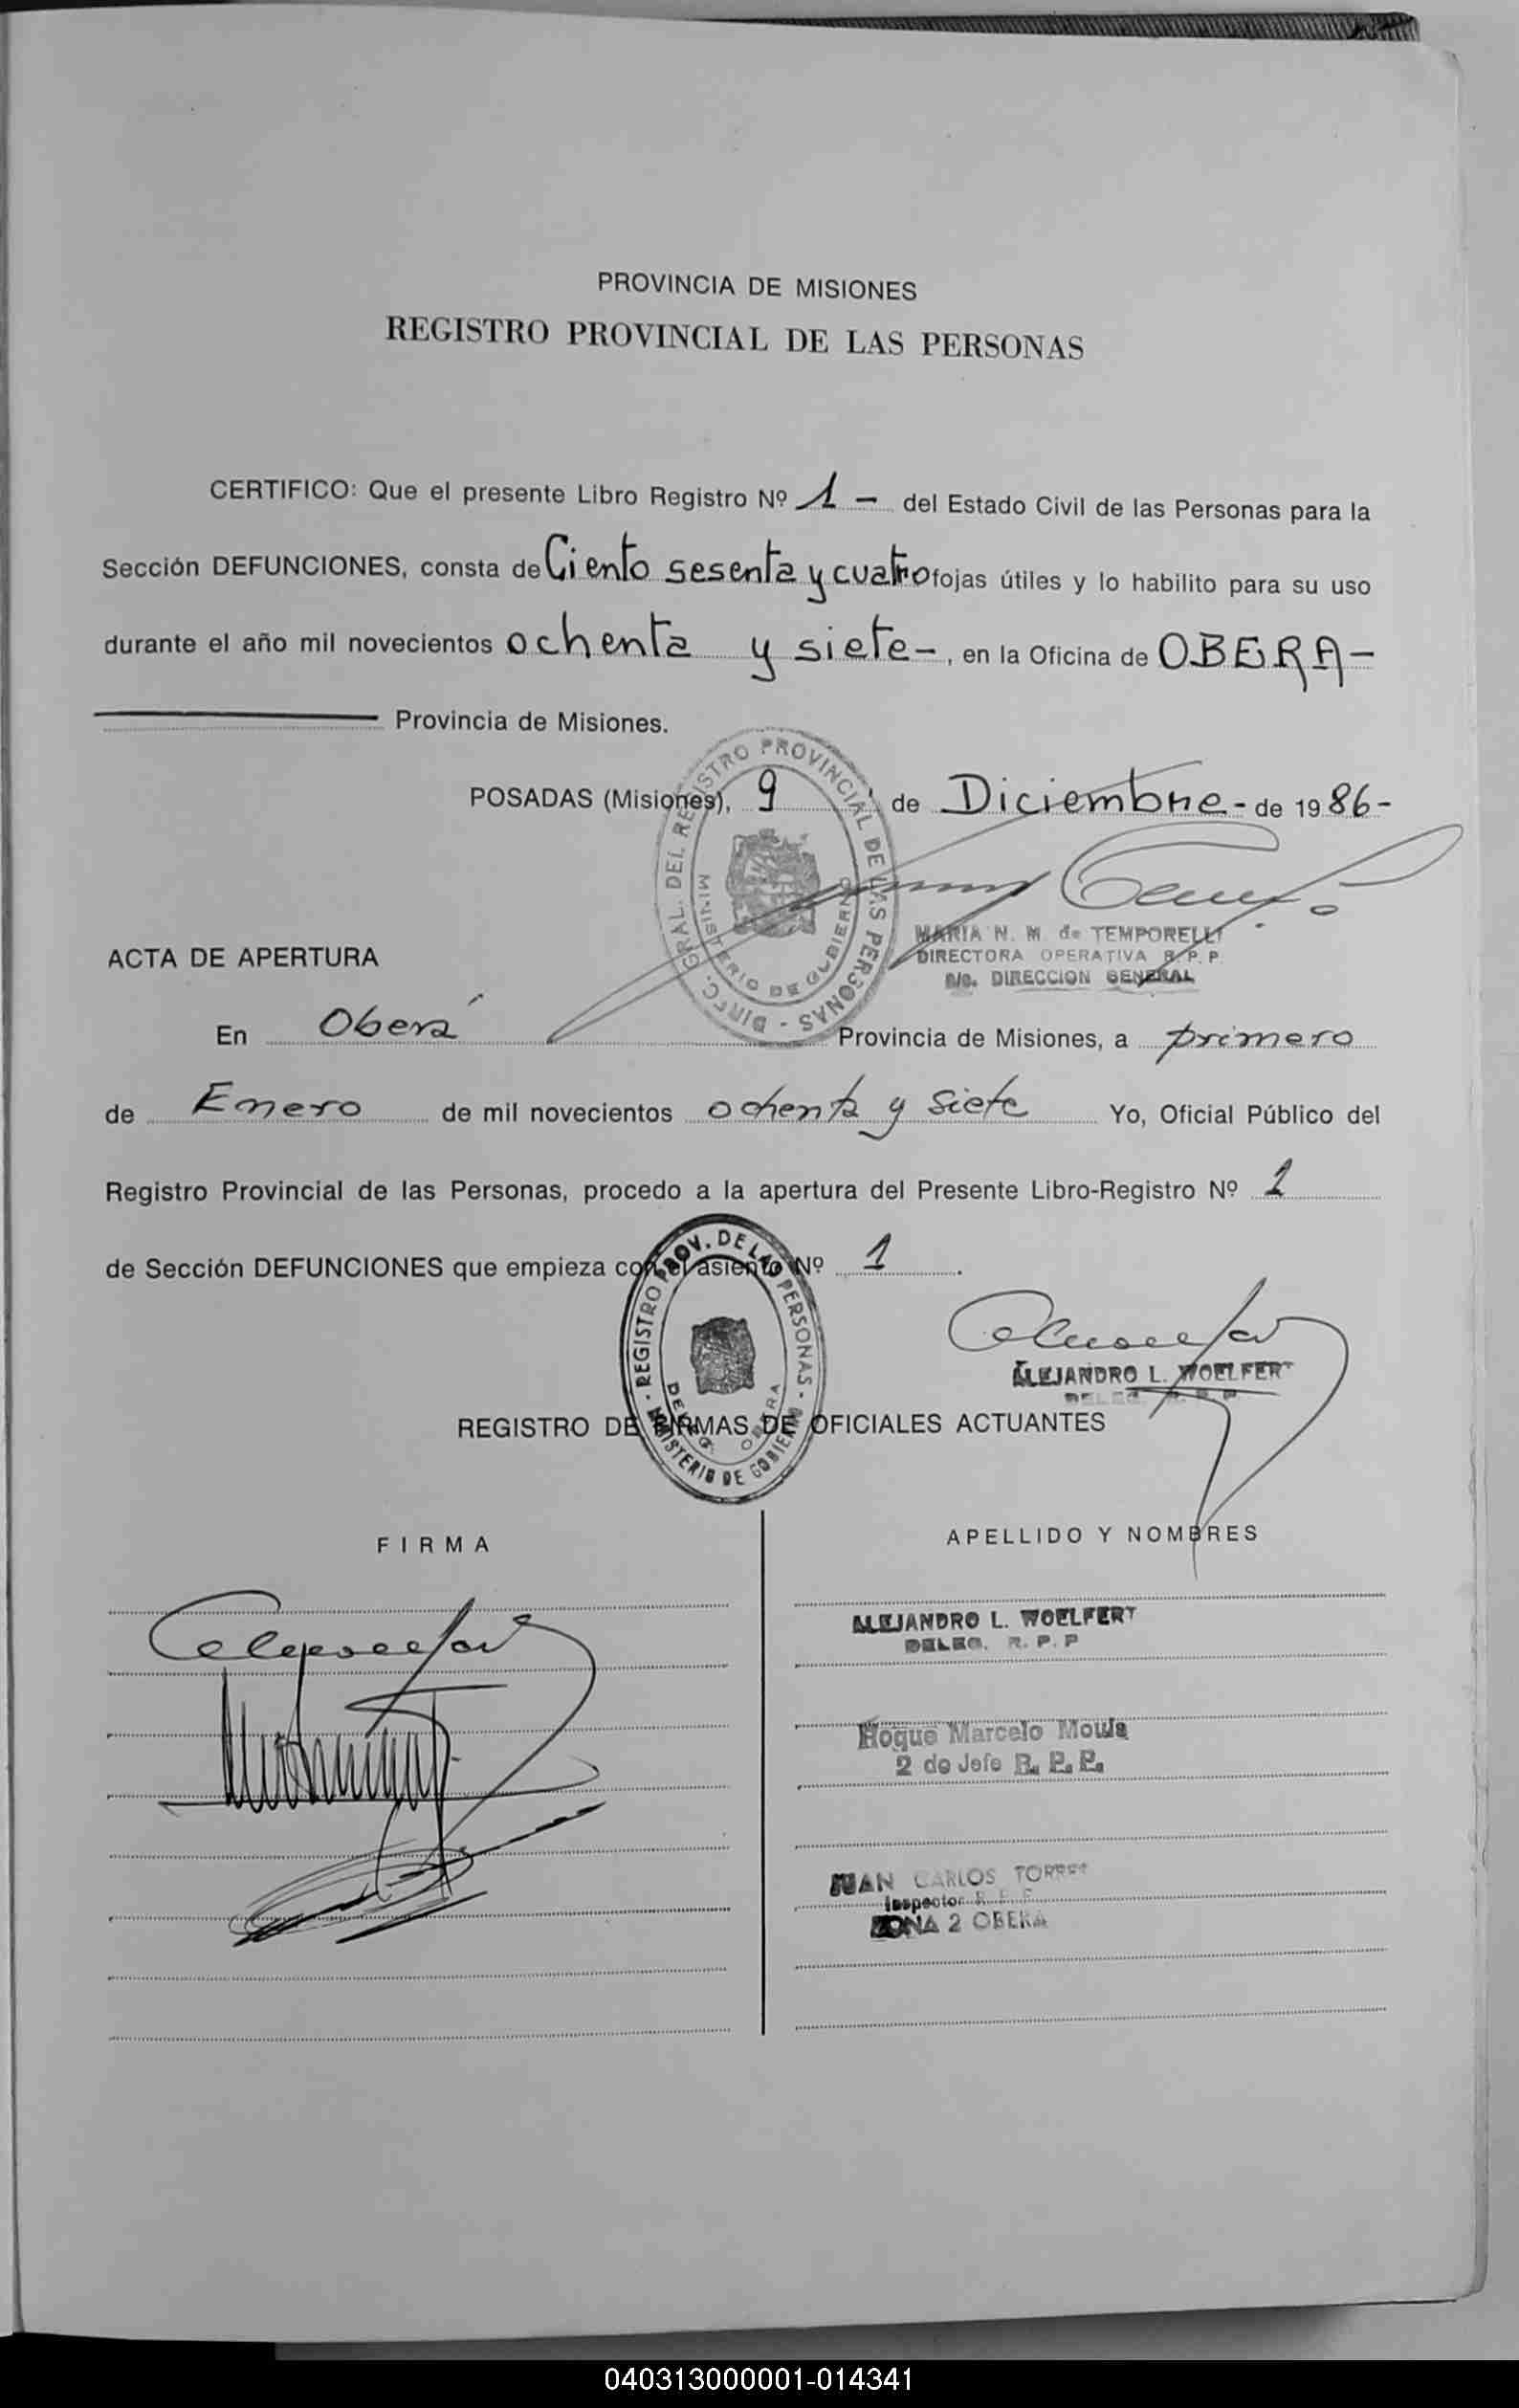 PROVINCIA DE MISIONES
REGISTRO PROVINCIAL DE LAS PERSONAS
CERTIFICO: Que el presente Libro Registro Nº 1 - del Estado Civil de las Personas para la
Sección DEFUNCIONES, consta de Ciento sesenta y cuatro fojas útiles y lo habilito para su uso
durante el año mil novecientos ochenta y siete -, en la Oficina de OBERA -
Provincia de Misiones.
POSADAS (Misiones), 9 de Diciembre - de 1986 -
DIREC. GRAL. DEL REGISTRO PROVINCIAL DE LAS PERSONAS -
MINISTERIO DE GOBIERNO
MARIA N. M. de TEMPORELLI
DIRECTORA OPERATIVA R. P. P.
a/c. DIRECCION GENERAL
ACTA DE APERTURA
En Oberá Provincia de Misiones, a primero
de Enero de mil novecientos ochenta y siete Yo, Oficial Público del
Registro Provincial de las Personas, procedo a la apertura del Presente Libro-Registro Nº 1
de Sección DEFUNCIONES que empieza con el asiento Nº 1.
- REGISTRO PROV. DE LAS PERSONAS - MINISTERIO DE GOBIERNO
DELEG. OBERA
ALEJANDRO L. WOELFERT
DELEG. R. P. P.
REGISTRO DE FIRMAS DE OFICIALES ACTUANTES
FIRMA APELLIDO Y NOMBRES
ALEJANDRO L. WOELFERT
DELEG. R. P. P
Roque Marcelo Moula
2 do Jefe R. P. P.
JUAN CARLOS TORRES
Inspector R. P. P.
ZONA 2 OBERA
040313000001-014341